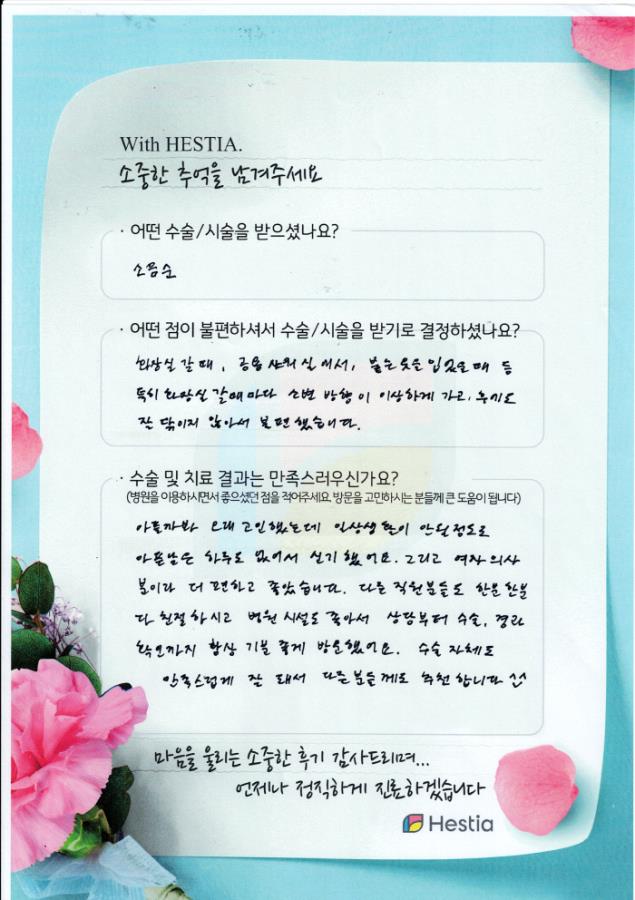 With HESTIA.
소중한 추억을 남겨주세요
· 어떤 수술/시술을 받으셨나요?
소음순
· 어떤 점이 불편하셔서 수술/시술을 받기로 결정하셨나요?
화장실 갈 때, 공용 샤워실에서, 붙는 옷을 입었을 때 등
특히 화장실 갈때마다 소변 방향이 이상하게 가고, 휴지도
잘 닦이지 않아서 불편했습니다.
· 수술 및 치료 결과는 만족스러우신가요?
(병원을 이용하시면서 좋으셨던 점을 적어주세요. 방문을 고민하시는 분들께 큰 도움이 됩니다)
아플까봐 오래 고민했는데 일상생활이 안될정도로
아픈날은 하루도 없어서 신기했어요. 그리고 여자의사
분이라 더 편하고 좋았습니다. 다른 직원분들도 한분한분
다 친절하시고 병원 시설도 좋아서 상담부터 수술, 경과
확인까지 항상 기분 좋게 방문했어요. 수술 자체도
만족스럽게 잘 돼서 다른분들께도 추천합니다 ^^
마음을 울리는 소중한 후기 감사드리며...
언제나 정직하게 진료하겠습니다
Hestia